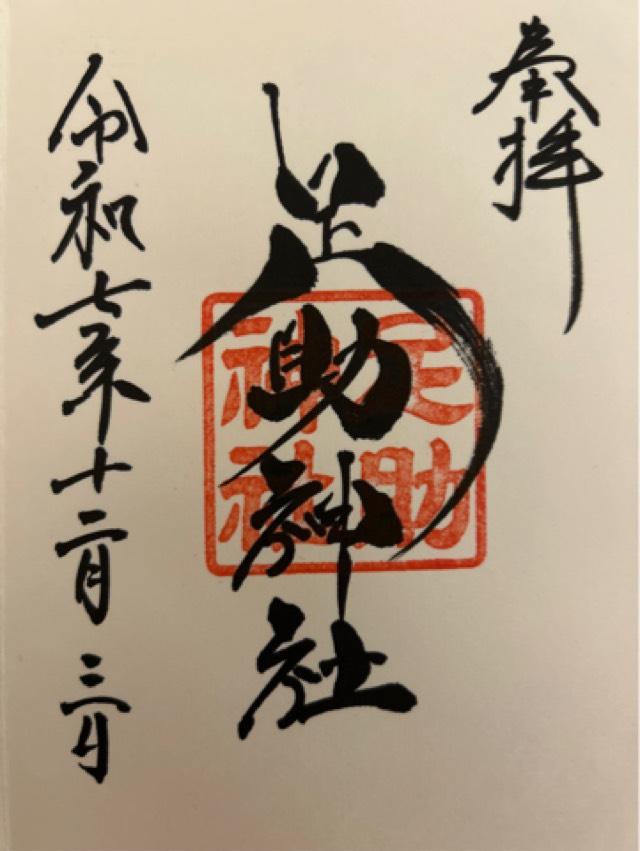 奉拝
足助神社
足助
神社
令和七年十二月三日